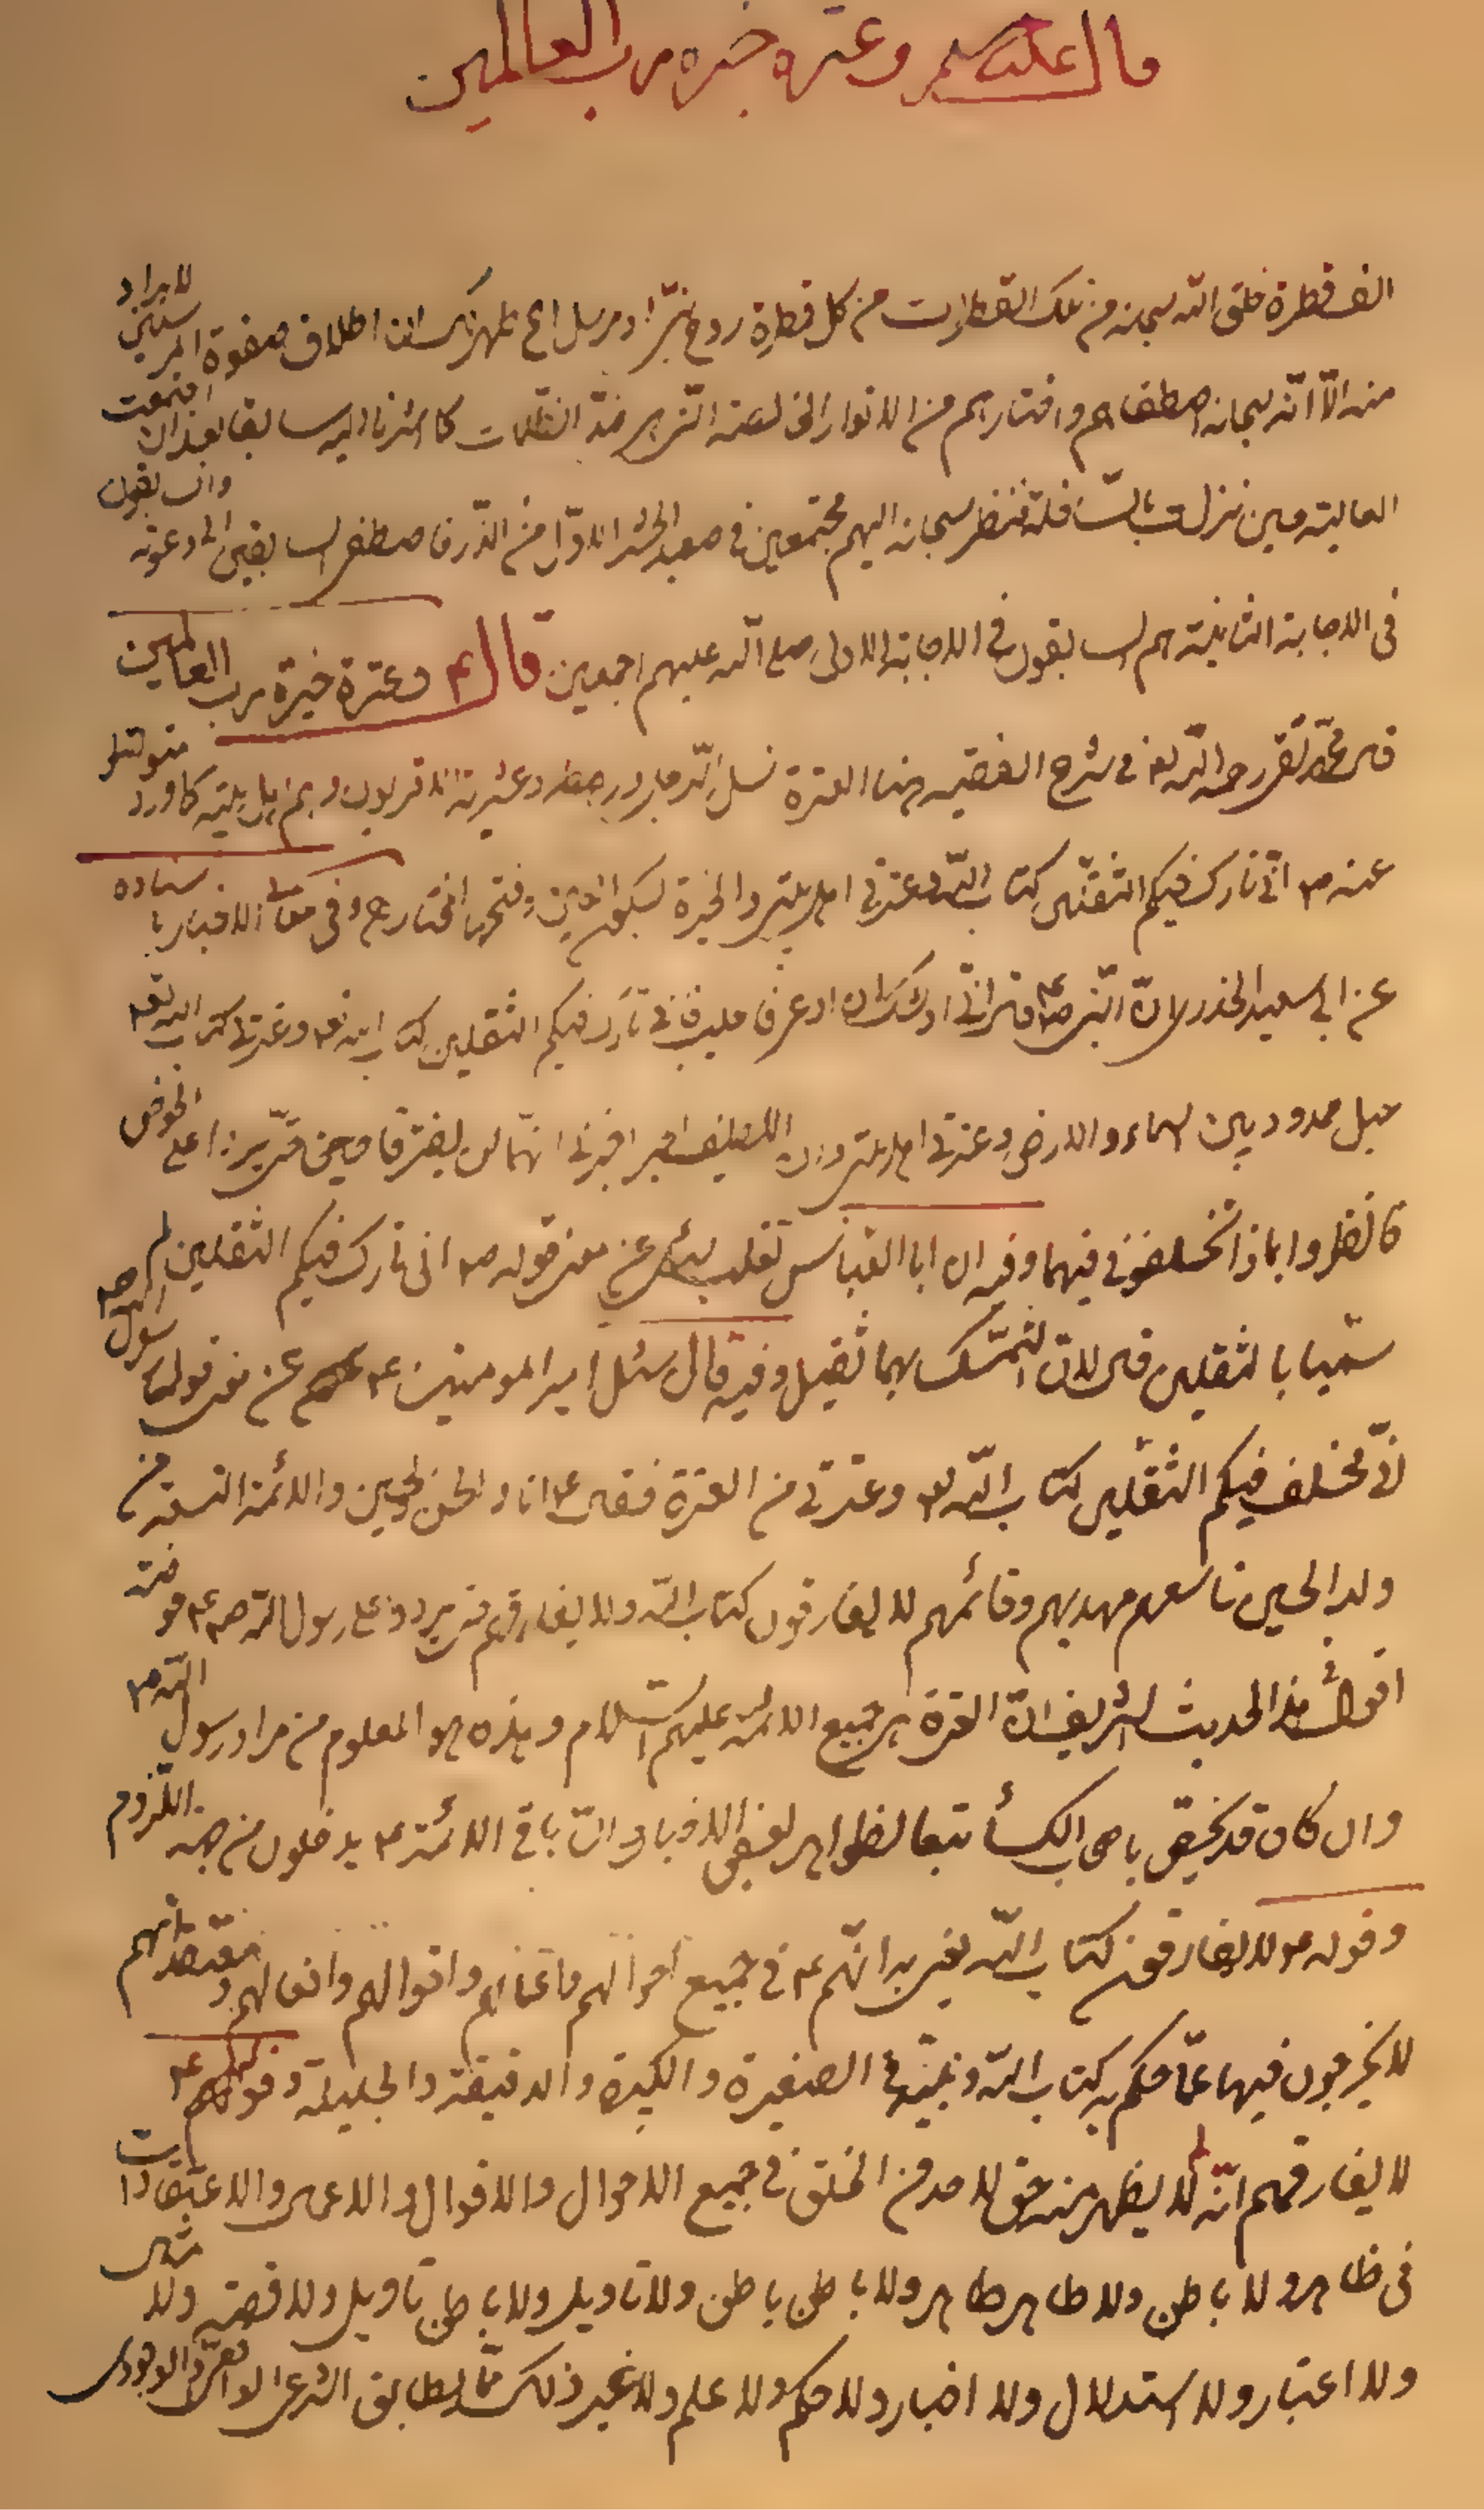 قال عليه السلام وعترة خيرة رب العالمين
الف قطرة خلق الله سبحانه من تلك القطرات من كل قطرة روح نبي او مرسل الخ ظهر لك ان اطلاق صفوة المرسلين لا يراد
منه الا انه سبحانه اصطفاهم واختارهم من الانوار الخالصة التي هي ضد الظلمات كما اشرنا اليه سابقا بعد ان اجتمعت
العالية حين نزلت فنظر سبحانه اليهم مجتمعين في صعيد المحشر الاول من الذر فاصطفى السابقين الى دعوته والسابقون
في الاجابة الثانية هم السابقون في الاجابة الاولى صلى الله عليهم اجمعين قال ع وعترة خيرة رب العالمين
قال محمد تقي رحمه الله تع في شرح الفقيه هنا العترة نسل الرجل ورهطه وعشيرته الاقربون وهم اهل بيته كما ورد متواترا
عنه ص اني تارك فيكم الثقلين كتاب الله وعترتي اهل بيتي والخيرة بسكون الياء وفتحها المختار ع وفي معاني الاخبار باسناده
عن ابي سعيد الخدري ان النبي ص قال اني اوشك ان ادعى فاجيب فاني تارك فيكم الثقلين كتاب الله تع وعترتي كتاب الله تع
حبل ممدود بين السماء والارض وعترتي اهل بيتي وان اللطيف الخبير اخبرني انهما لن يفترقا حتى يردا على الحوض
فانظروا بماذا تخلفوني فيهما وفيه ان ابا العباس ثعلب سئل عن معنى قوله ص اني تارك فيكم الثقلين لم
سميا بالثقلين قال لان التمسك بهما ثقيل وفيه قال سئل امير المومنين ع عن معنى قول رسول الله ص
اني مخلف فيكم الثقلين كتاب الله تع وعترتي من العترة فقال ع انا والحسن والحسين والائمة التسعة من
ولد الحسين تاسعهم مهديهم وقائمهم لا يفارقون كتاب الله ولا يفارقهم حتى يردوا على رسول الله ص حوضه
اقول هذا الحديث الشريف ان العترة هي جميع الائمة عليهم السلام وهذه هو المعلوم من مراد رسول الله ص
وان كان قد يخص باصحاب الكسأ تبعا لظواهر بعض الاخبار وان باقي الائمة ع يدخلون من جهة اللزوم
وقوله ع لا يفارقون كتاب الله يعني به انهم ع في جميع احوالهم واعمالهم واقوالهم وافعالهم ومعتقداتهم
لا يخرجون فيها عما حكم به كتاب الله ونبيه في الصغيرة والكبيرة والدقيقة والجليلة وقولهم ع
لا يفارقهم انه لا يظهر منه حق لاحد من الخلق في جميع الاحوال والاقوال والاعمال والاعتقادات
في ظاهر ولا باطن ولا ظاهر ظاهر ولا باطن باطن ولا تاويل ولا باطن تاويل ولا قصة ولا مثل
ولا اعتبار ولا استدلال ولا اخبار ولا حكم ولا علم ولا غير ذلك مما يطابق الشرعي الوجودي